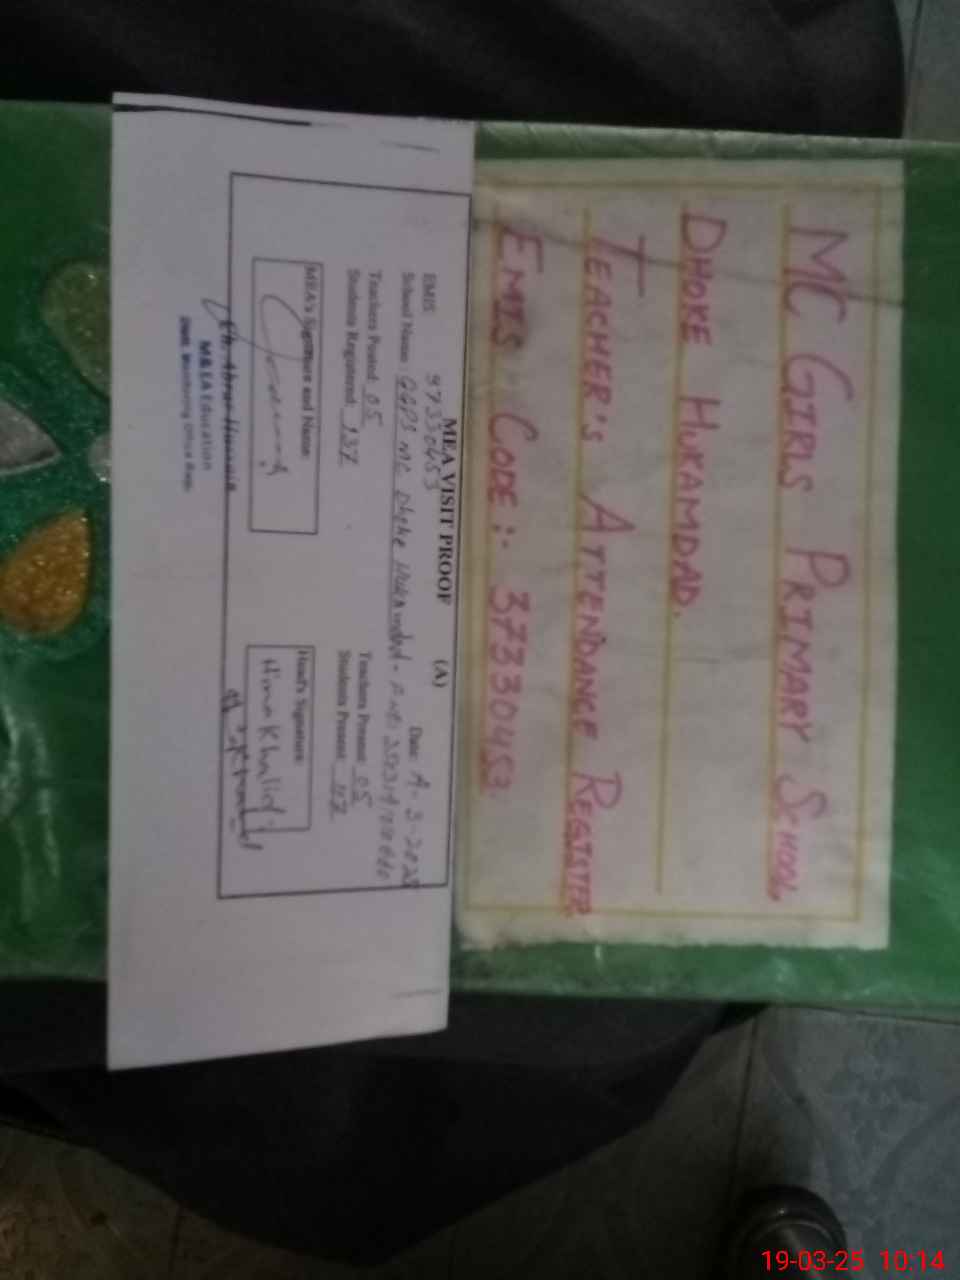 MC GIRLS PRIMARY SCHOOL
DHOKE HUKAMDAD.
TEACHER'S ATTENDANCE REGISTER
EMIS CODE:- 37330453
MEA VISIT PROOF (A)
EMIS 37330453 Date: 3-2025
School Name: GGPS MC Dhoke Hukamdad
Teachers Posted: 05 Teachers Present: 05
Students Registered: 137 Students Present: 117
MEA's Signature and Name Head's Signature
Hina Khalid
M&EA Education
19-03-25 10:14